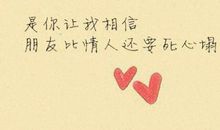 是你让我相信
朋友比情人还要死心塌